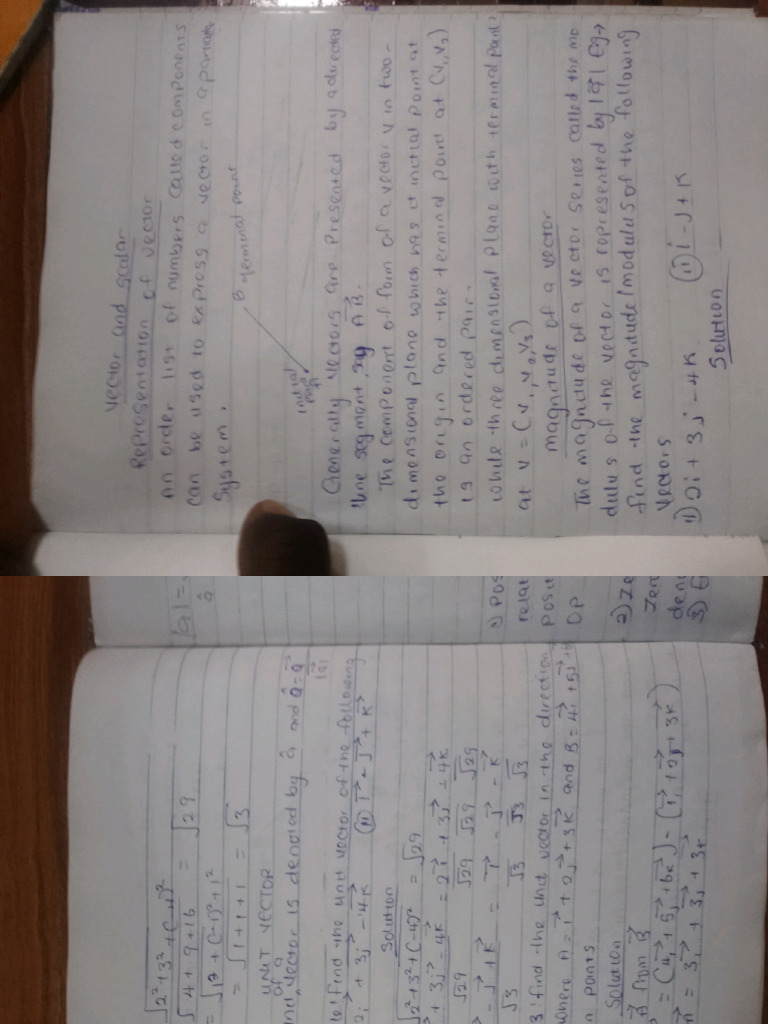 Vector and scalar
Representation of vector
An order list of numbers called components
can be used to express a vector in a
System.
B terminal point
initial
Generally vectors are presented by a directed
line segment, say AB.
The component of form of a vector v in two-
dimensional plane which has it initial point at
the origin and the terminal point at (v1, v2)
is an ordered pair.
while three dimensional plane with terminal point
at v = (v1, v2, v3)
magnitude of a vector
The magnitude of a vector series called the mo
dulus of the vector is represented by |a| Eg→
find the magnitude/modulus of the following
vectors
i) 2i + 3j - 4k (ii) i - j + k
Solution
√2² + 3² + (-4)²
√4 + 9 + 16 = √29
= √1² + (-1)² + 1²
= √1 + 1 + 1 = √3
UNIT VECTOR
of a
Vector is denoted by â and â = a/|a|
find the unit vector of the following
2i + 3j - 4k (ii) i - j + k
Solution
√2² + 3² + (-4)² = √29
+ 3j - 4k = 2i + 3j - 4k
√29 √29 √29 √29
- j + k = i - j - k
√3 √3 √3 √3
3: find the unit vector in the direction
where A = i + 2j + 3k and B = 4i + 5j + 6
points
Solution
from B
= (4i + 5j + 6k) - (i + 2j + 3k)
= 3i + 3j + 3k
|a| =
â
1) Pos
relat
Posit
OP
2) Ze
Zero
deno
3)